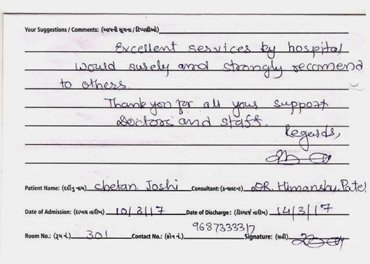 Your Suggestions / Comments: (આપની સૂચના / ટિપ્પણીઓ)
Excellent services by hospital
would surely and strongly recomend
to others.
Thankyou for all your support
Doctors and staff.
Regards,
Patient Name: (દર્દીનું નામ) Chetan Joshi Consultant: (કન્સલ્ટન્ટ) DR Himanshu Patel
Date of Admission: (દાખલ તારીખ) 10/3/17 Date of Discharge: (ડિસ્ચાર્જ તારીખ) 14/3/17
Room No.: (રૂમ નં.) 301 Contact No.: (ફોન નં.) 9687333317 Signature: (સહી)